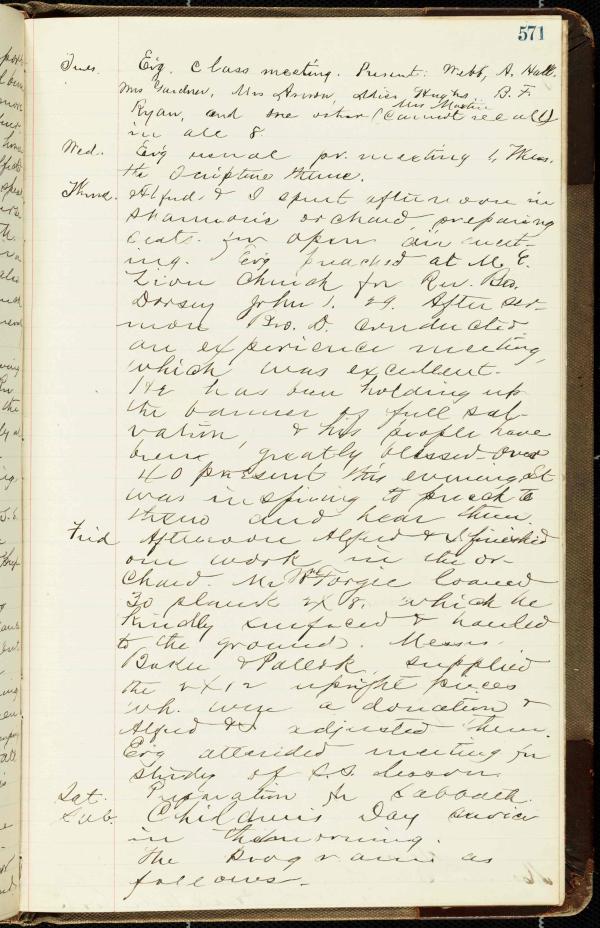 571
Tues. Ev'g. Class meeting. Present: Webb, A. Hall.
Mrs Gardner, Mrs Annon, Miss Hughs, B. F.
Mrs Martin
Ryan, and one other (cannot recall)
in all 8.
Wed. Ev'g usual pr. meeting
the Scripture theme.
Thurs. Alfred & I spent afternoon in
Shannon's orchard, preparing
seats for open air meet-
ing. Ev'g preached at M. E.
Zion Church for Rev. Bro.
Dorsey John 1. 29. After ser-
mon Bro. D. conducted
an experience meeting,
which was excellent.
He has been holding up
the banner of full sal-
vation, & his people have
been greatly blessed. Over
40 present this evening. It
was inspiring to preach to
them and hear them.
Frid Afternoon Alfred & I finished
our work in the or-
chard. Mr Wm Forgie loaned
30 plank 2 X 8. which he
kindly surfaced & hauled
to the ground. Messrs.
Baker & Pollok, supplied
the 2 X 12 upright pieces
wh. were a donation &
Alfred & I adjusted them.
Ev'g attended meeting for
study of S.S. lesson.
Sat. Preparation for Sabbath.
Sab. Children's Day service
in the morning.
The program as
follows-